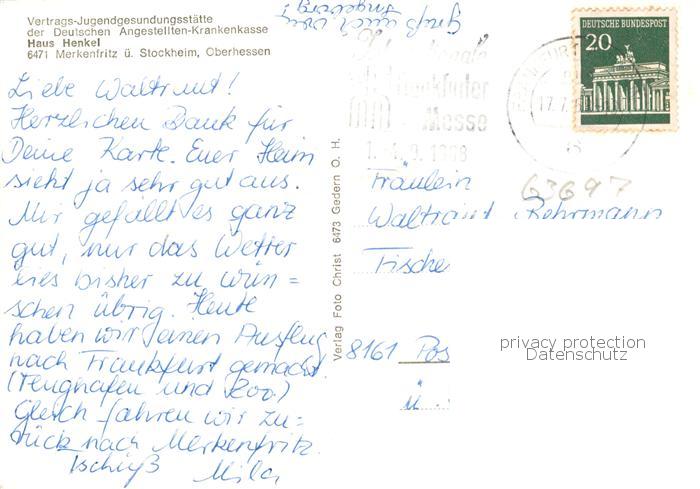 Vertrags-Jugendgesundungsstätte
der Deutschen Angestellten-Krankenkasse
Haus Henkel
6471 Merkenfritz ü. Stockheim, Oberhessen
Grüß auch von
Liebe Waltraut!
Herzlichen Dank für
Deine Karte. Euer Heim
sieht ja sehr gut aus.
Mir gefällt es ganz
gut, nur das Wetter
lies bisher zu wün=
schen übrig. Heute
haben wir einen Ausflug
nach Frankfurt gemacht.
(Flughafen und Zoo.)
Gleich fahren wir zu-
rück nach Merkenfritz.
Tschüß
Verlag Foto Christ 6473 Gedern O. H.
DEUTSCHE BUNDESPOST
20
Frankfurter
Messe
1968
17.7.
63697
Fräulein
Waltraut Rohrmann
Fische
8161 Pos
privacy protection
Datenschutz